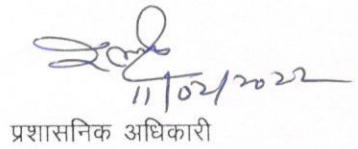 11/02/2022
प्रशासनिक अधिकारी